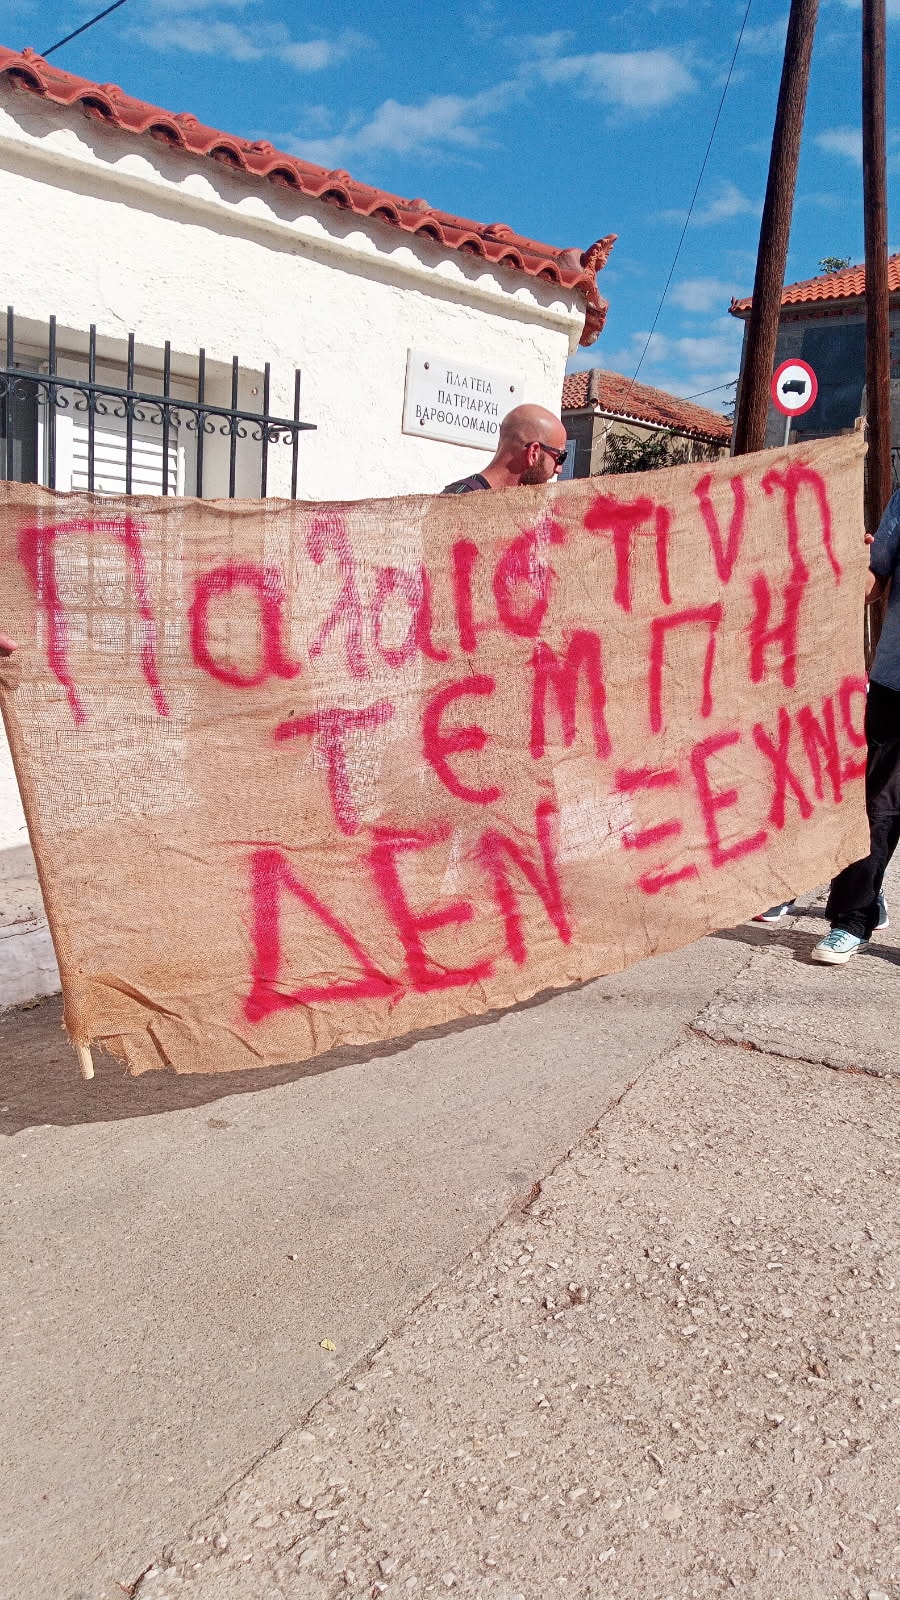 ΠΛΑΤΕΙΑ
ΠΑΤΡΙΑΡΧΗ
ΒΑΡΘΟΛΟΜΑΙΟΥ
Παλαιστινη
ΤΕΜΠΗ
ΔΕΝ ΞΕΧΝΩ